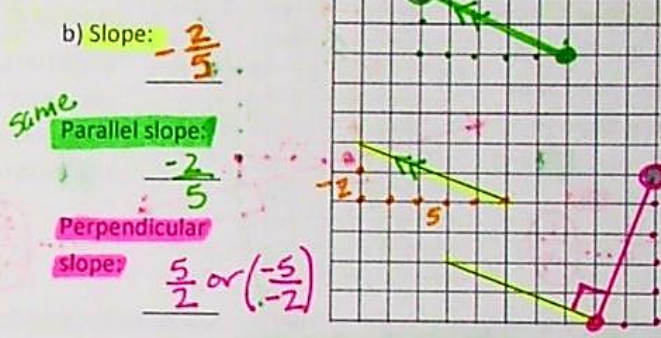 b) Slope: - 2/5
same
Parallel slope:
-2/5
Perpendicular
slope: 5/2 or (-5/-2)
-2
5